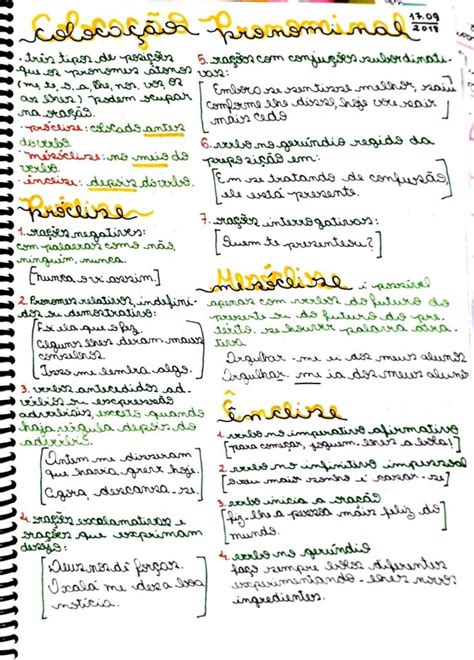 Colocação Pronominal
17.09
2019
• três tipos de posições
que os pronomes átonos
(me, te, o, a, lhe, nos, vos, os
as lhes) podem ocupar
na oração.
- próclise: colocado antes
do verbo.
- mesóclise: no meio do
verbo.
- ênclise: depois do verbo.
Próclise
1. orações negativas:
com palavras como não,
ninguém, nunca.
[nunca o vi assim.]
2. Pronomes relativos, indefini-
dos ou demonstrativo:
Foi ela que o fez.
Alguns lhes deram maus
conselhos.
Isso me lembra algo.
3. verbos antecedidos ad-
vérbios ou expressões
adverbiais, exceto quando
haja vírgula depois do
advérbio.
Ontem me disseram
que havia greve hoje.
Agora, descansa-se.
4. orações exclamativas e
orações que exprimam
desejo:
Deus nos dê forças.
Oxalá me dês a boa
notícia.
5. orações com conjunções subordinati-
vas:
Embora se sentisse melhor, saiu
Conforme lhe disse, hoje vou sair
mais cedo
6. verbo no gerúndio regido da
preposição em:
Em se tratando de confusão,
ele está presente.
7. orações interrogativas:
Quem te presenteou?
Mesóclise é possível
apenas com verbos do futuro do
presente ou do futuro do pre-
térito. se houver palavra atra-
tiva
Orgulhar-me-ei dos meus alunos
Orgulhar-me-ia dos meus alunos
Ênclise
1. verbo no imperativo afirmativo
[para começar, joguem-lhes a bola!]
2. verbo no infinitivo impessoal
[o seu maior sonho é casar-se]
3. verbo inicia a oração
fiz-lhe a pessoa mais feliz do
mundo.
4. verbo no gerúndio
faço sempre bolos diferentes
experimentando-lhes novos
ingredientes.